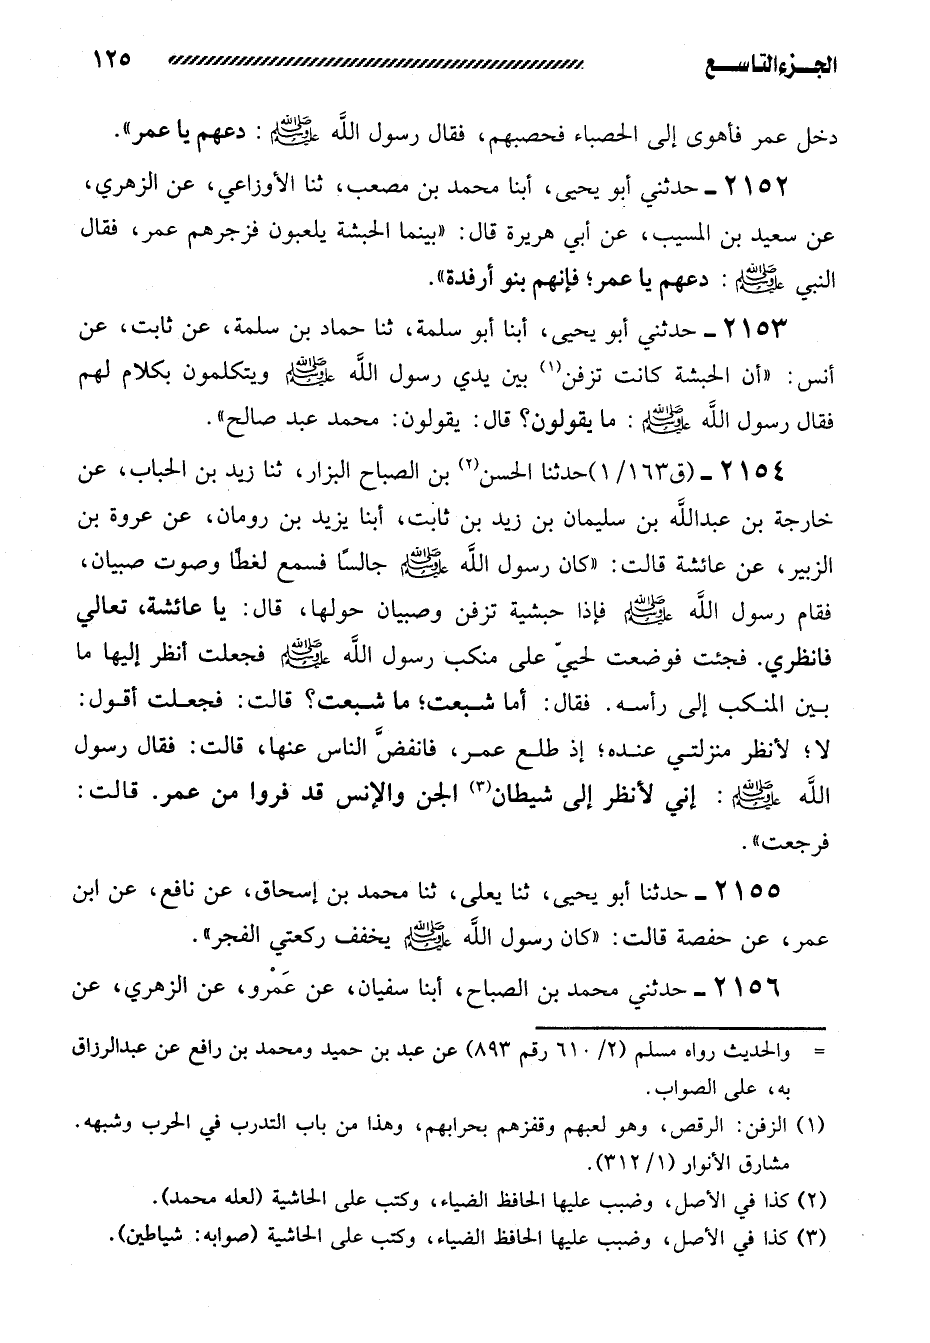 الجزء التاسع ١٢٥
دخل عمر فأهوى إلى الحصباء فحصبهم، فقال رسول اللَّه ﷺ : دعهم يا عمر».
٢١٥٢ ـ حدثني أبو يحيى، أبنا محمد بن مصعب، ثنا الأوزاعي، عن الزهري،
عن سعيد بن المسيب، عن أبي هريرة قال: «بينما الحبشة يلعبون فزجرهم عمر، فقال
النبي ﷺ : دعهم يا عمر؛ فإنهم بنو أرفدة».
٢١٥٣ ـ حدثني أبو يحيى، أبنا أبو سلمة، ثنا حماد بن سلمة، عن ثابت، عن
أنس: «أن الحبشة كانت تزفن(١) بين يدي رسول اللَّه ﷺ ويتكلمون بكلام لهم
فقال رسول اللَّه ﷺ : ما يقولون؟ قال: يقولون: محمد عبد صالح».
٢١٥٤ ـ (ق١/١٦٣)حدثنا الحسن(٢) بن الصباح البزار، ثنا زيد بن الحباب، عن
خارجة بن عبداللَّه بن سليمان بن زيد بن ثابت، أبنا يزيد بن رومان، عن عروة بن
الزبير، عن عائشة قالت: «كان رسول اللَّه ﷺ جالسًا فسمع لغطًا وصوت صبيان،
فقام رسول اللَّه ﷺ فإذا حبشية تزفن وصبيان حولها، قال: يا عائشة، تعالي
فانظري. فجئت فوضعت لحييّ على منكب رسول اللَّه ﷺ فجعلت أنظر إليها ما
بين المنكب إلى رأسه. فقال: أما شبعت؛ ما شبعت؟ قالت: فجعلت أقول:
لا؛ لأنظر منزلتي عنده؛ إذ طلع عمر، فانفضَّ الناس عنها، قالت: فقال رسول
اللَّه ﷺ : إني لأنظر إلى شيطان(٣) الجن والإنس قد فروا من عمر. قالت:
فرجعت».
٢١٥٥ ـ حدثنا أبو يحيى، ثنا يعلى، ثنا محمد بن إسحاق، عن نافع، عن ابن
عمر، عن حفصة قالت: «كان رسول اللَّه ﷺ يخفف ركعتي الفجر».
٢١٥٦ ـ حدثني محمد بن الصباح، أبنا سفيان، عن عَمْرو، عن الزهري، عن
= والحديث رواه مسلم (٢/ ٦١٠ رقم ٨٩٣) عن عبد بن حميد ومحمد بن رافع عن عبدالرزاق
به، على الصواب.
(١) الزفن: الرقص، وهو لعبهم وقفزهم بحرابهم، وهذا من باب التدرب في الحرب وشبهه.
مشارق الأنوار (١/ ٣١٢).
(٢) كذا في الأصل، وضبب عليها الحافظ الضياء، وكتب على الحاشية (لعله محمد).
(٣) كذا في الأصل، وضبب عليها الحافظ الضياء، وكتب على الحاشية (صوابه: شياطين).